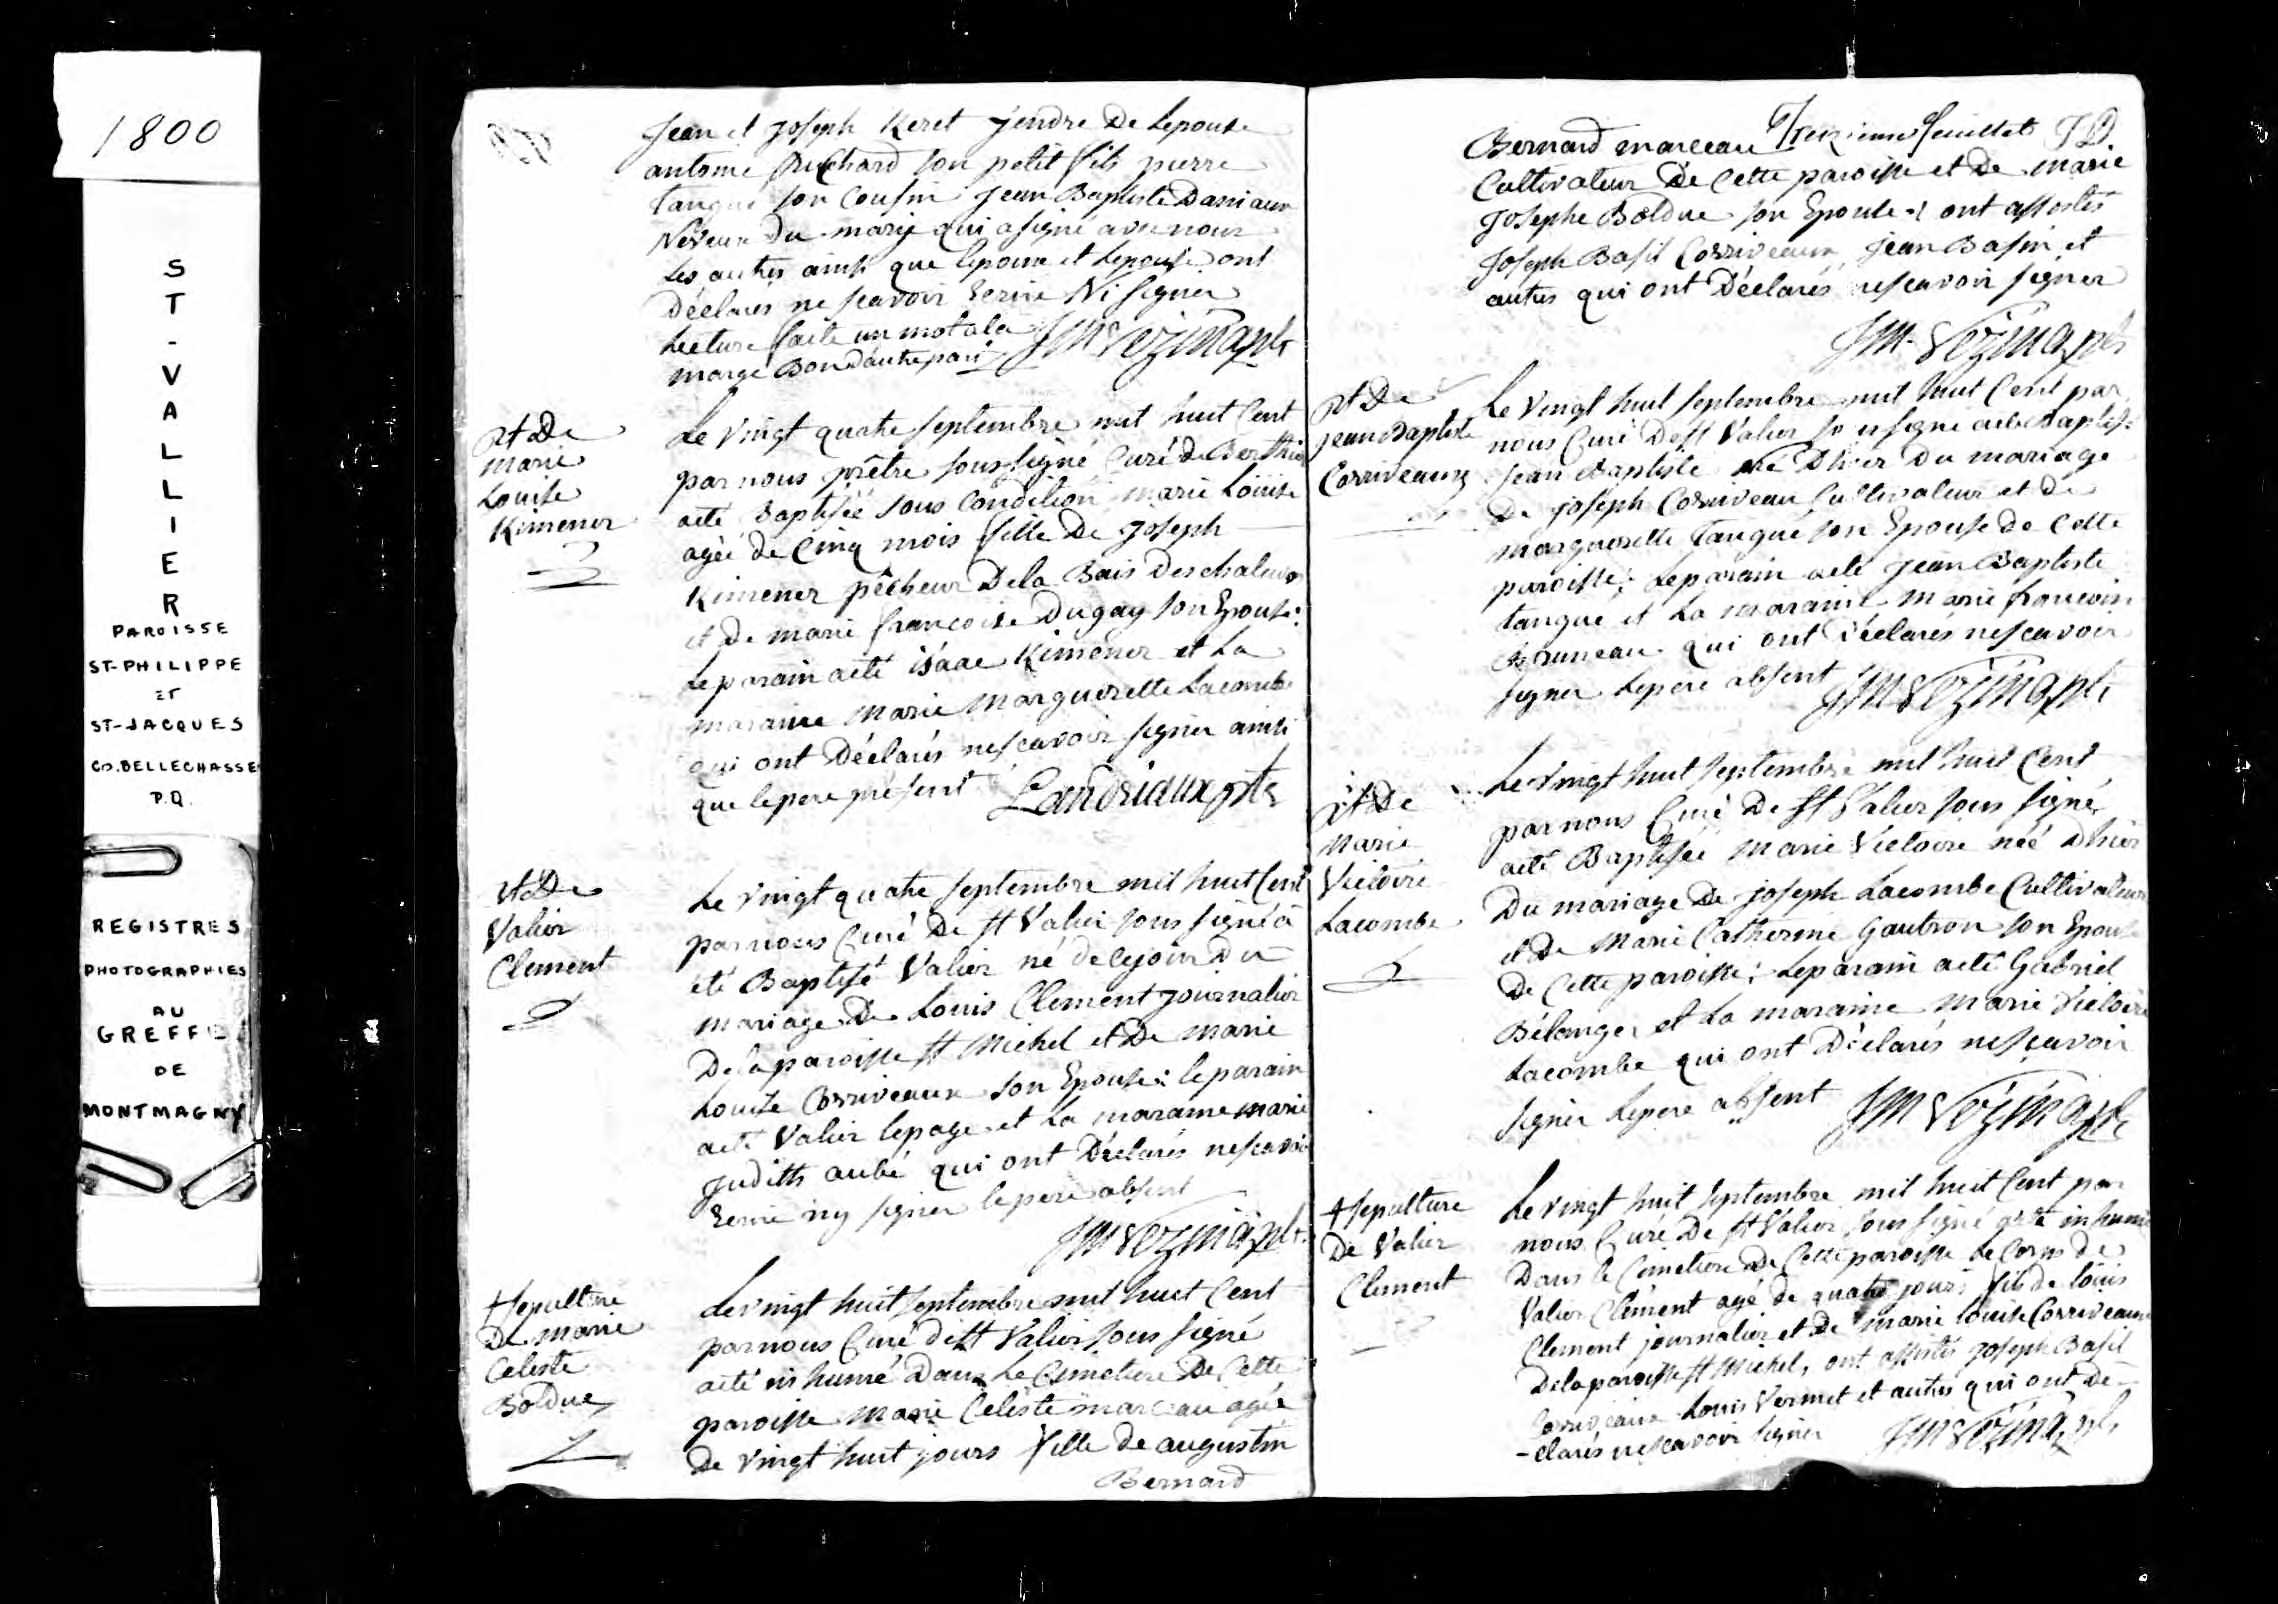 1800
S
T
-
V
A
L
L
I
E
R
PAROISSE
ST-PHILIPPE
ET
ST-JACQUES
CO. BELLECHASSE
P.Q.
REGISTRES
PHOTOGRAPHIES
AU
GREFFE
DE
MONTMAGNY
Jean et Joseph Keret jendre De Lepouse
antoine son petit fils pierre
Tangué son Cousin Jean Baptiste Daniaux
Neveux Du marié qui a signé avec nous
Les autres ainsi que lepoux et Lepouse ont
Déclarés ne scavoir Ecrire Ni signer
Lecture faite un mot a la
marge Bon D'autre part JM Vézina ptr
Bt De
marie
Louise
Kimener
Le vingt quatre septembre mil huit Cent
par nous prêtre soussigné Curé de Berthier
a eté Baptisée sous Condition marie Louise
agée de Cinq mois fille De Joseph
Kimener pêcheur De la Bais Des chaleurs
et De marie francoise Dugay son Epouse:
Le parain a eté isaac Kimener et La
maraine marie marguerette Lacombe
qui ont Déclarés ne scavoir signer ainsi
que le pere présent Landriaux ptr
Bt De
Valier
Clement
Le vingt quatre septembre mil huit Cent
par nous Curé De St Valier sous signé a
été Baptisé Valier né de ce jour Du
mariage De Louis Clement journalier
De la paroisse St Michel et De marie
Louise Corriveaux son Epouse: le parain
a eté Valier lepage et La maraine marie
Judith aubé qui ont Déclarés ne scavoir
Ecrire ny signer le pere absent
JM Vézina ptr
+ sepulture
De marie
Celeste
Bolduc
Le vingt huit septembre mil huit Cent
par nous Curé de St Valier sous signé
a eté inhumé Dans Le Cimetiere De Cette
paroisse marie Celeste marceau agée
de vingt huit jours fille de augustin
Bernard
Treizieme feuillet JD
Bernard marceau
Cultivateur De Cette paroisse et De marie
Josephe Bolduc son Epouse: ont assistés
Joseph Basil Corriveaux, Jean Basin et
autres qui ont Déclarés ne scavoir signer
JM Vézina ptr
Bt De
jean Baptiste
Corriveaux
Le vingt huit septembre mil huit Cent par
nous Curé De St Valier soussigné a eté Baptisé
Jean Baptiste né D'hier Du mariage
De joseph Corriveau Cultivateur et De
marguerette Tangué son Epouse De Cette
paroisse: Le parain a eté Jean Baptiste
tangué et La maraine marie francoise
Bruneau qui ont Déclarés ne scavoir
signer Le pere absent JM Vézina ptr
Bt De
Marie
Victoire
Lacombe
Le vingt huit septembre mil huit Cent
par nous Curé De St Valier sous signé
a eté Baptisée Marie Victoire née D'hier
Du mariage De joseph Lacombe Cultivateur
et De Marie Catherine Gautron son Epouse
De Cette paroisse: Le parain a eté Gabriel
Bélanger et La maraine Marie Victoire
Lacombe qui ont Déclarés ne scavoir
signer Le pere absent JM Vézina ptr
+ sepulture
De Valier
Clement
Le vingt huit septembre mil huit Cent par
nous Curé De St Valier sous signé a eté inhumé
Dans le Cimetiere De Cette paroisse Le Corps De
Valier Clément agé de quatre jours fils de Louis
Clement journalier et De marie louise Corriveaux
De la paroisse St Michel, ont assistés joseph Basil
Corriveaux Louis Vermet et autres qui ont Dé-
-clarés ne scavoir signer JM Vézina ptr